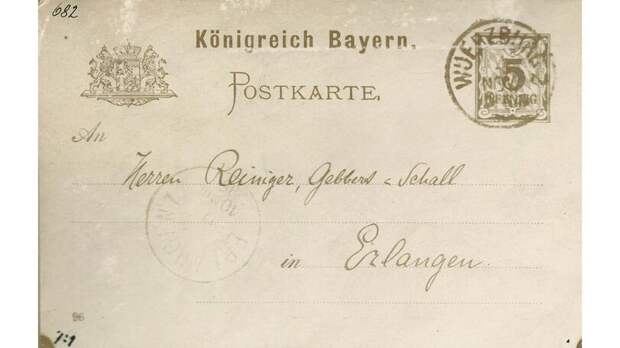 682
Königreich Bayern.
WUERZBURG 2
NOV
5
PFENNIG
POSTKARTE.
An
Herren Reiniger, Gebbert & Schall
ERLANGEN
in Erlangen.
96
7:1